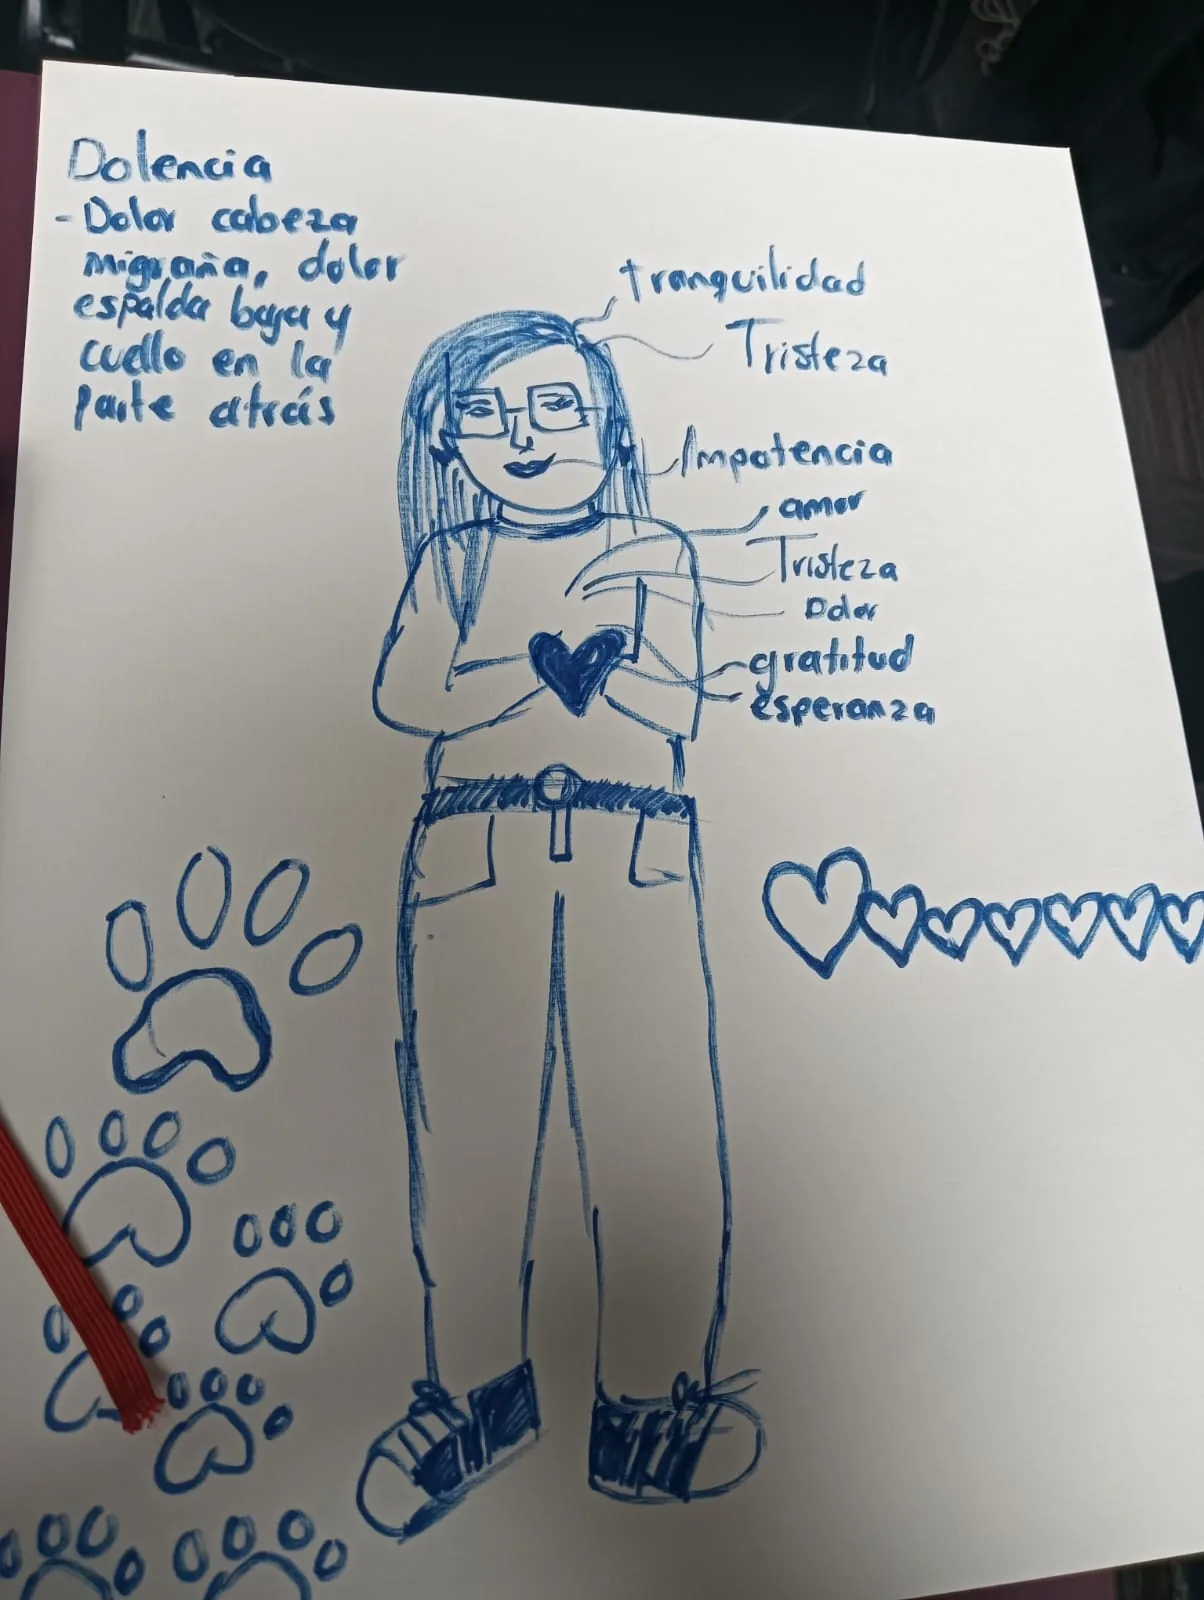 Dolencia
- Dolor cabeza
migraña, dolor
espalda baja y
cuello en la
parte atrás
tranquilidad
Tristeza
Impotencia
amor
Tristeza
Dolor
gratitud
esperanza